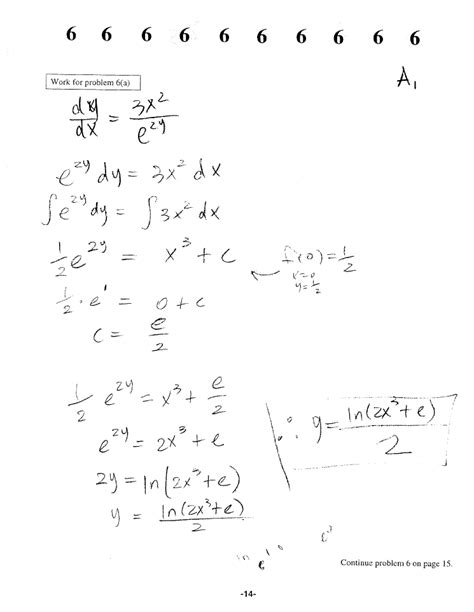 6 6 6 6 6 6 6 6 6 6
A₁
Work for problem 6(a)
dy/dx = 3x²/e^{2y}
e^{2y} dy = 3x² dx
∫e^{2y} dy = ∫3x² dx
½e^{2y} = x³ + c
f(0) = ½
x=0
y=½
½·e¹ = 0 + c
c = e/2
½ e^{2y} = x³ + e/2
e^{2y} = 2x³ + e
2y = ln(2x³ + e)
y = ln(2x³+e)/2
∴ y = ln(2x³+e)/2
Continue problem 6 on page 15.
-14-